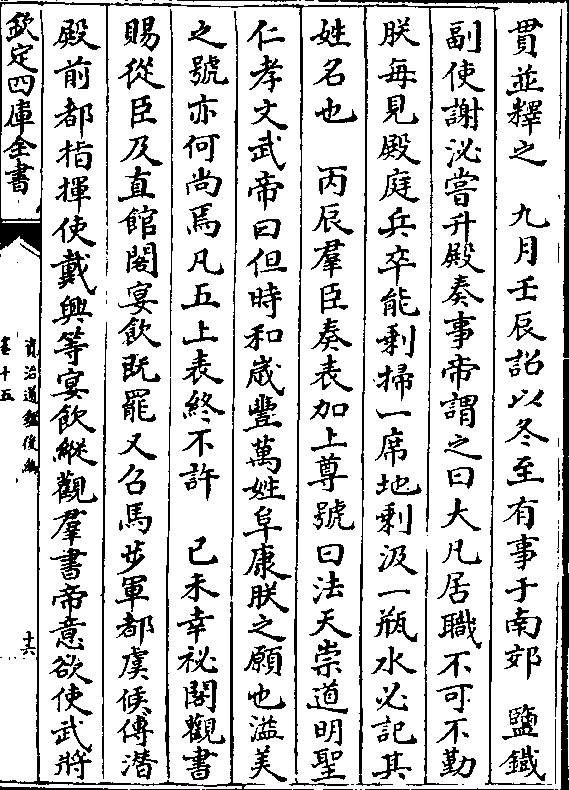 貫並釋之　九月壬辰詔以冬至有事于南郊　鹽鐵
副使謝泌嘗升殿奏事帝謂之曰大凡居職不可不勤
朕每見殿庭兵卒能剩掃一席地剩汲一瓶水必記其
姓名也　丙辰羣臣奏表加上尊號曰法天崇道明聖
仁孝文武帝曰但時和歲豐萬姓阜康朕之願也溢美
之號亦何尚焉凡五上表終不許　己未幸祕閣觀書
賜從臣及直館閣宴飲既罷又召馬步軍都虞候傅潛
殿前都指揮使戴興等宴飲縱觀羣書帝意欲使武將
欽定四庫全書
資治通鑑後編
卷十五
十六